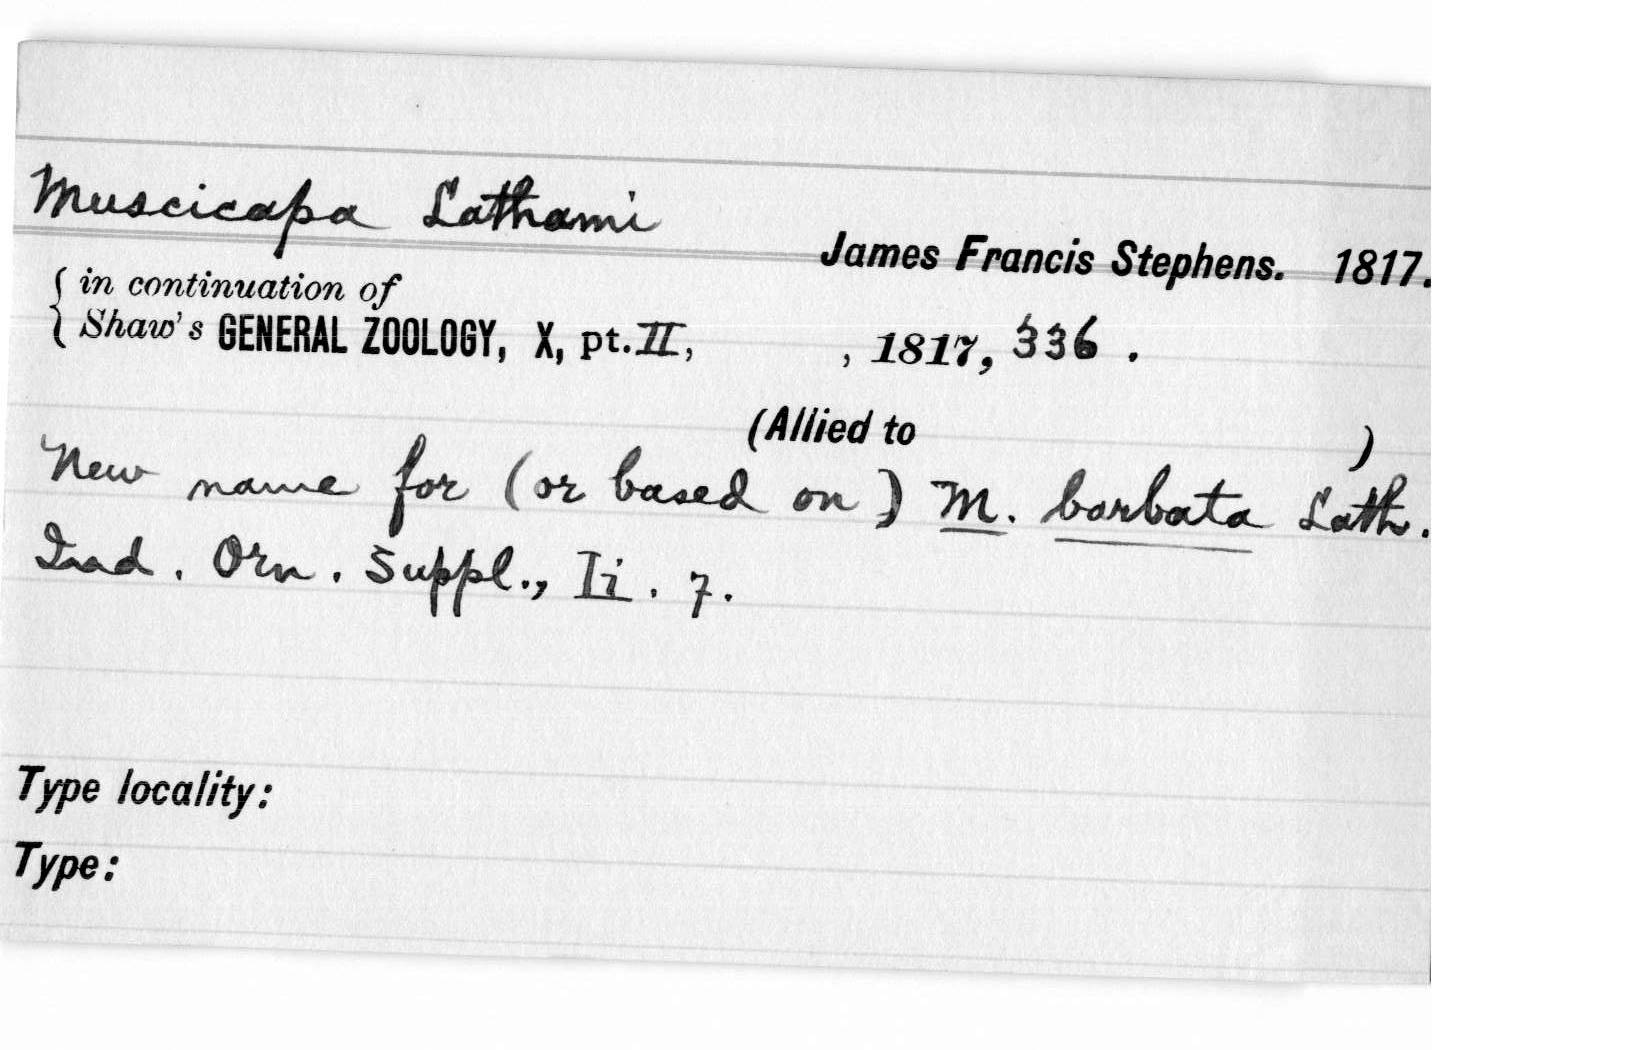 Muscicapa Lathami
James Francis Stephens. 1817.
{ in continuation of
{ Shaw's GENERAL ZOOLOGY, X, pt. II, , 1817, 336 .
(Allied to )
New name for (or based on) M. barbata Lath.
Ind. Orn. Suppl., Ii. 7.
Type locality:
Type: